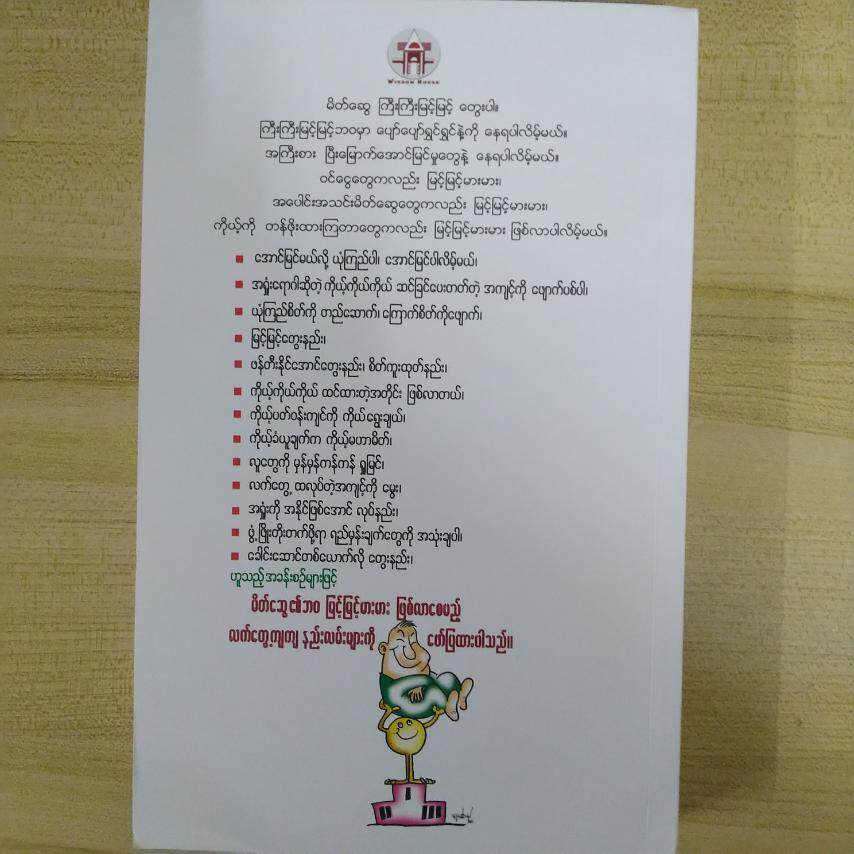 WISDOM HOUSE
မိတ်ဆွေ ကြီးကြီးမြင့်မြင့် တွေးပါ။
ကြီးကြီးမြင့်မြင့်ဘဝမှာ ပျော်ပျော်ရွှင်ရွှင်နဲ့ကို နေရပါလိမ့်မယ်။
အကြီးစား ပြီးမြောက်အောင်မြင်မှုတွေနဲ့ နေရပါလိမ့်မယ်။
ဝင်ငွေတွေကလည်း မြင့်မြင့်မားမား၊
အပေါင်းအသင်းမိတ်ဆွေတွေကလည်း မြင့်မြင့်မားမား၊
ကိုယ့်ကို တန်ဖိုးထားကြတာတွေကလည်း မြင့်မြင့်မားမား ဖြစ်လာပါလိမ့်မယ်။
■ အောင်မြင်မယ်လို့ ယုံကြည်ပါ၊ အောင်မြင်ပါလိမ့်မယ်၊
■ အရှုံးရောဂါဆိုတဲ့ ကိုယ့်ကိုယ်ကိုယ် ဆင်ခြင်ပေးတတ်တဲ့ အကျင့်ကို ဖျောက်ပစ်ပါ၊
■ ယုံကြည်စိတ်ကို တည်ဆောက်၊ ကြောက်စိတ်ကိုဖျောက်၊
■ မြင့်မြင့်တွေးနည်း၊
■ ဖန်တီးနိုင်အောင်တွေးနည်း၊ စိတ်ကူးထုတ်နည်း၊
■ ကိုယ့်ကိုယ်ကိုယ် ထင်ထားတဲ့အတိုင်း ဖြစ်လာတယ်၊
■ ကိုယ့်ပတ်ဝန်းကျင်ကို ကိုယ်ရွေးချယ်၊
■ ကိုယ့်ခံယူချက်က ကိုယ့်မဟာမိတ်၊
■ လူတွေကို မှန်မှန်ကန်ကန် ရှုမြင်၊
■ လက်တွေ့ ထလုပ်တဲ့အကျင့်ကို မွေး၊
■ အရှုံးကို အနိုင်ဖြစ်အောင် လုပ်နည်း၊
■ ဖွံ့ဖြိုးတိုးတက်ဖို့ရာ ရည်မှန်းချက်တွေကို အသုံးချပါ၊
■ ခေါင်းဆောင်တစ်ယောက်လို တွေးနည်း၊
ဟူသည့်အခန်းစဉ်များဖြင့်
မိတ်ဆွေ၏ဘဝ မြင့်မြင့်မားမား ဖြစ်လာစေမည့်
လက်တွေ့ကျကျ နည်းလမ်းများကို ဖော်ပြထားပါသည်။